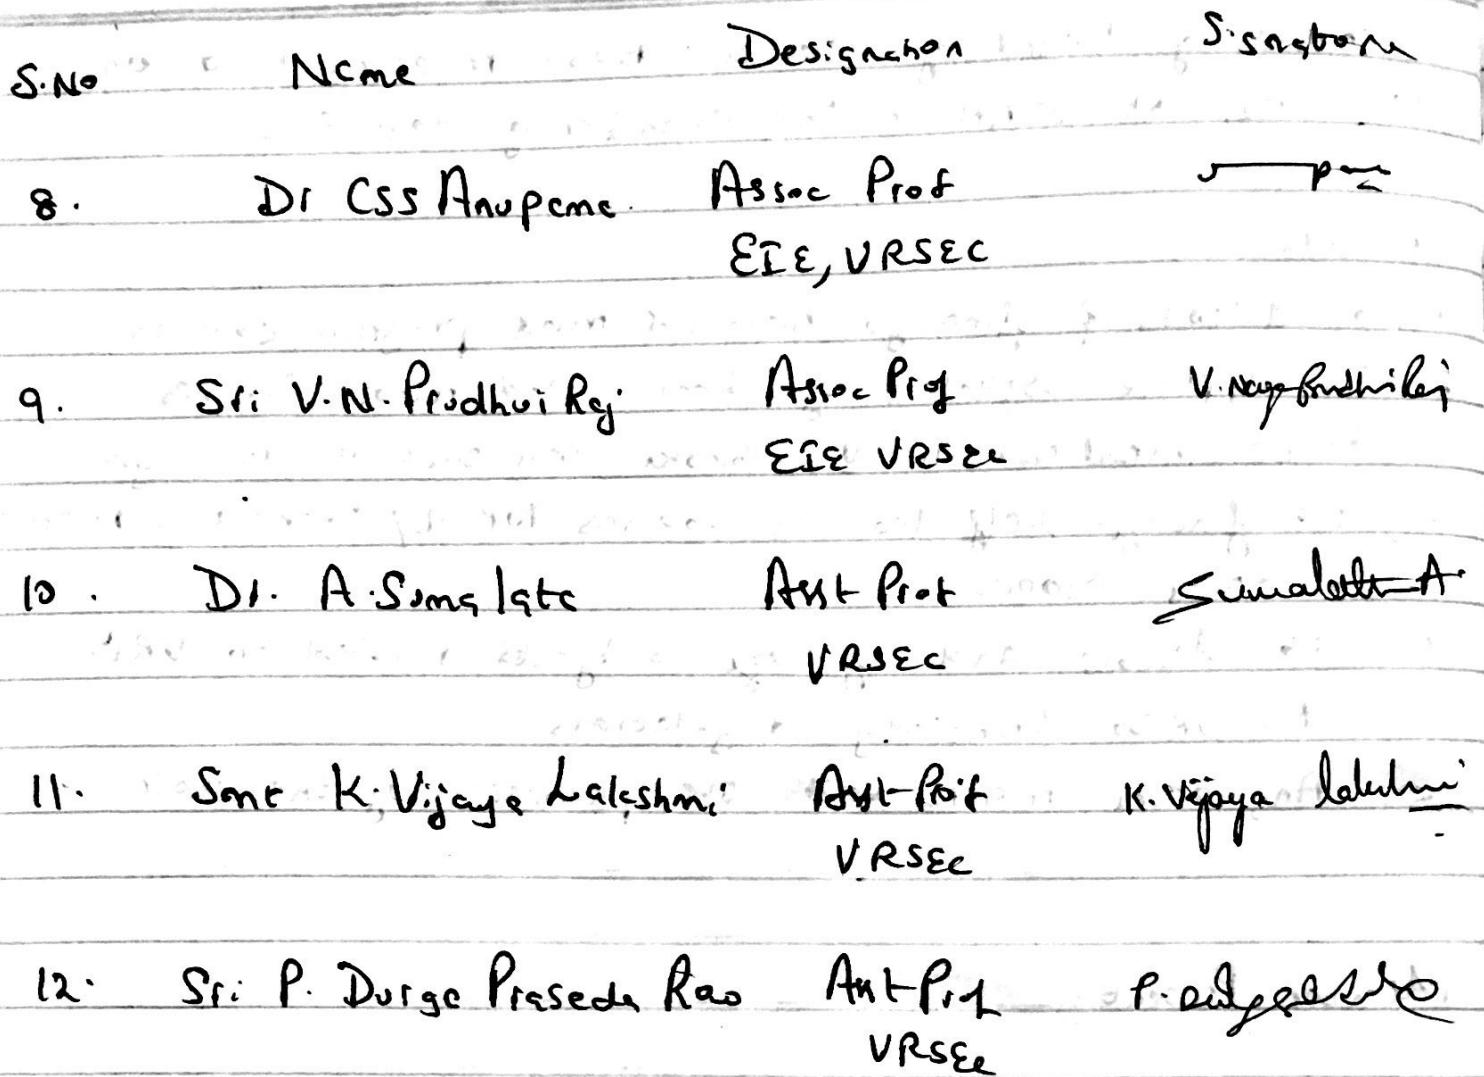 S.No Name Designation Signature
8. Dr CSS Anupama. Assoc Prof
EIE, VRSEC
9. Sri V.N. Prudhvi Raj Assoc Prof V. Naga Prudhvi Raj
EIE VRSEC
10. Dr. A. Sumalata Asst Prof Sumalatha A
VRSEC
11. Smt K. Vijaya Lakshmi Asst Prof K. Vijaya lakshmi
VRSEC
12. Sri P. Durga Praseda Rao Asst Prof
VRSEC